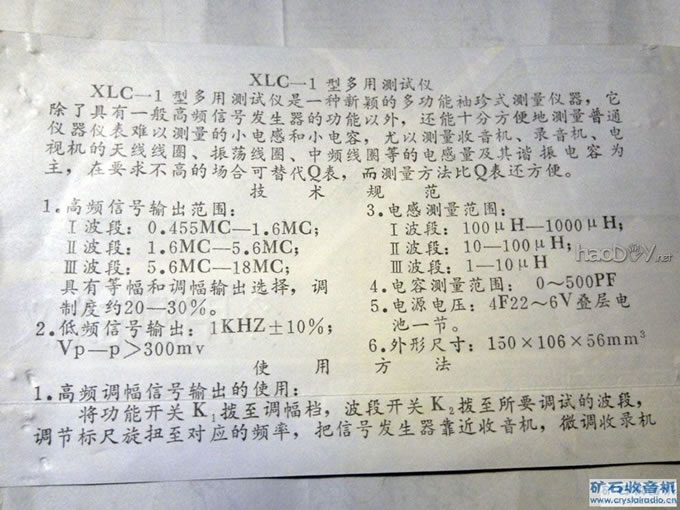 XLC—1 型多用测试仪
XLC—1 型多用测试仪是一种新颖的多功能袖珍式测量仪器，它
除了具有一般高频信号发生器的功能以外，还能十分方便地测量普通
仪器仪表难以测量的小电感和小电容，尤以测量收音机、录音机、电
视机的天线线圈、振荡线圈、中频线圈等的电感量及其谐振电容为
主，在要求不高的场合可替代Q表，而测量方法比Q表还方便。
技 术 规 范
1.高频信号输出范围：
Ⅰ波段：0.455MC—1.6MC；
Ⅱ波段：1.6MC—5.6MC；
Ⅲ波段：5.6MC—18MC；
具有等幅和调幅输出选择，调
制度约20—30%。
2.低频信号输出：1KHZ±10%；
Vp—p＞300mv
3.电感测量范围：
Ⅰ波段：100μH—1000μH；
Ⅱ波段：10—100μH；
Ⅲ波段：1—10μH
4.电容测量范围：0～500PF
5.电源电压：4F22～6V叠层电
池一节。
6.外形尺寸：150×106×56mm³
使 用 方 法
1.高频调幅信号输出的使用：
将功能开关K₁拨至调幅档，波段开关K₂拨至所要调试的波段，
调节标尺旋扭至对应的频率，把信号发生器靠近收音机，微调收录机
haoDIY.net
矿石收音机
www.crystalradio.cn